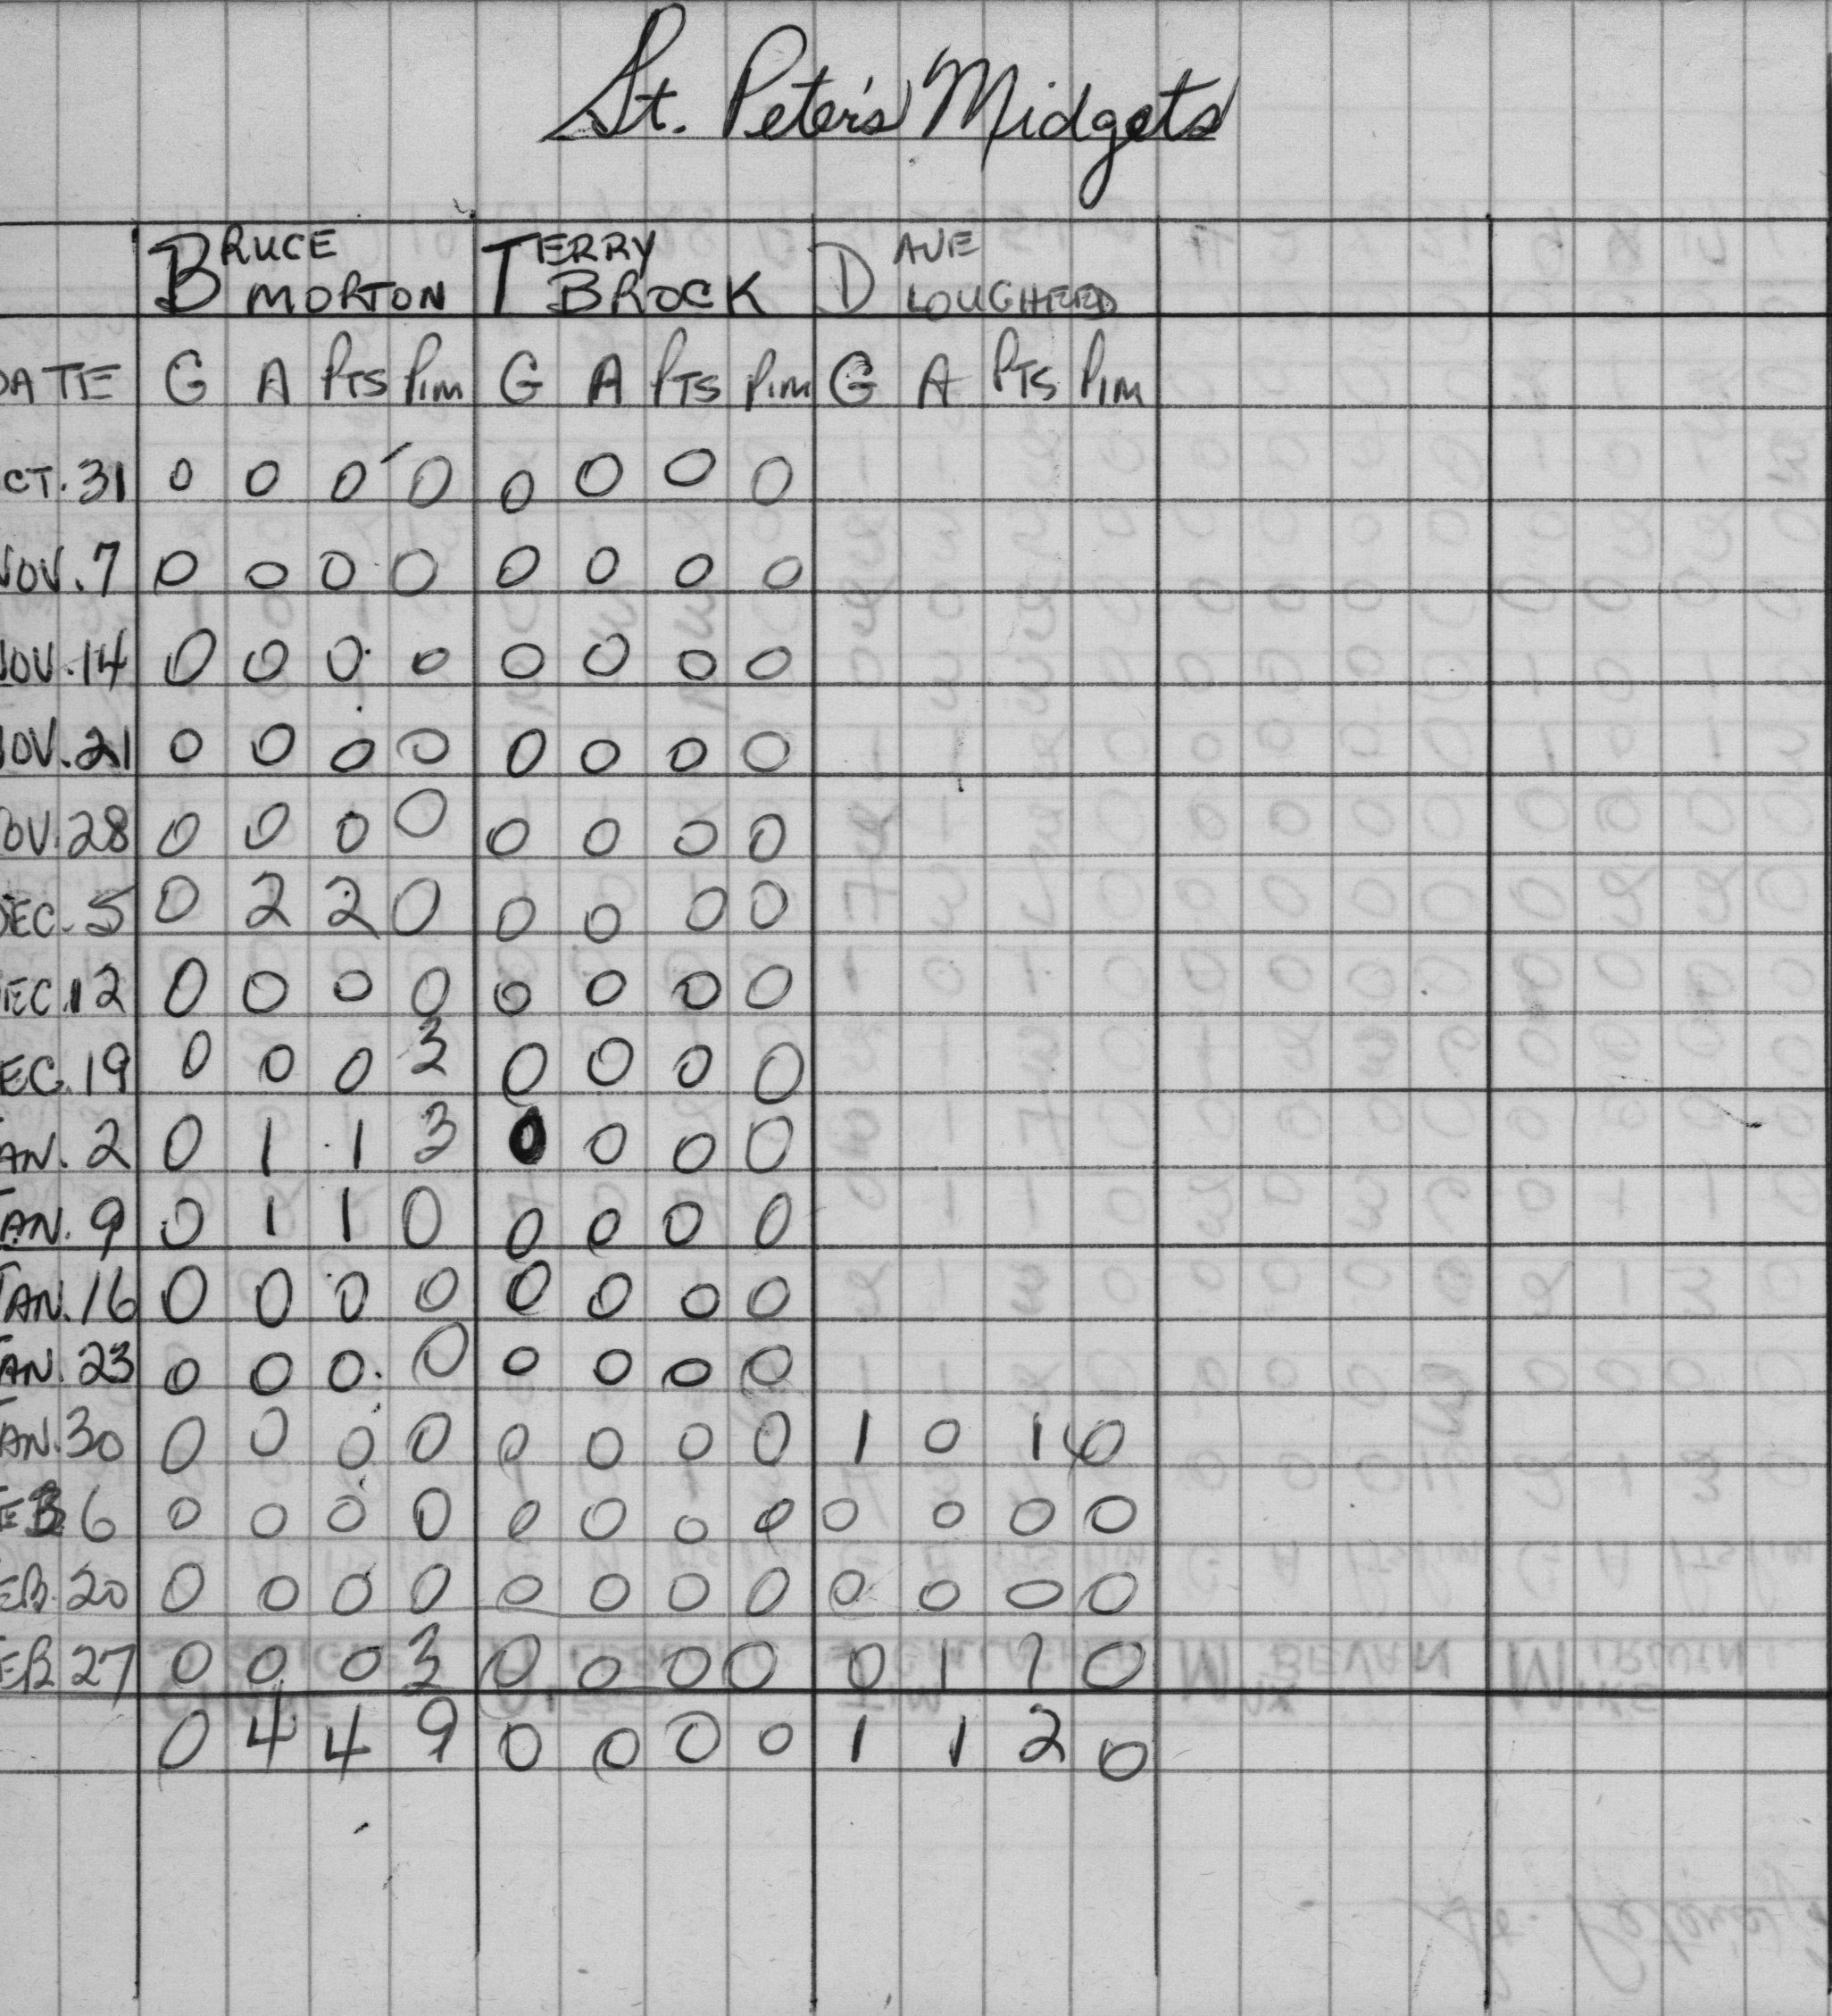 St. Peter's Midgets
BRUCE MORTON TERRY BROCK DAVE LOUGHEED
DATE G A PTS PIM G A PTS PIM G A PTS PIM
CT. 31 0 0 0 0 0 0 0 0
NOV. 7 0 0 0 0 0 0 0 0
NOV. 14 0 0 0 0 0 0 0 0
NOV. 21 0 0 0 0 0 0 0 0
OV. 28 0 0 0 0 0 0 0 0
DEC. 5 0 2 2 0 0 0 0 0
EC. 12 0 0 0 0 0 0 0 0
EC. 19 0 0 0 3 0 0 0 0
AN. 2 0 1 1 3 0 0 0 0
AN. 9 0 1 1 0 0 0 0 0
JAN. 16 0 0 0 0 0 0 0 0
AN. 23 0 0 0 0 0 0 0 0
AN. 30 0 0 0 0 0 0 0 0 1 0 1 0
EB 6 0 0 0 0 0 0 0 0 0 0 0 0
EB. 20 0 0 0 0 0 0 0 0 0 0 0 0
EB 27 0 0 0 3 0 0 0 0 0 1 1 0
0 4 4 9 0 0 0 0 1 1 2 0